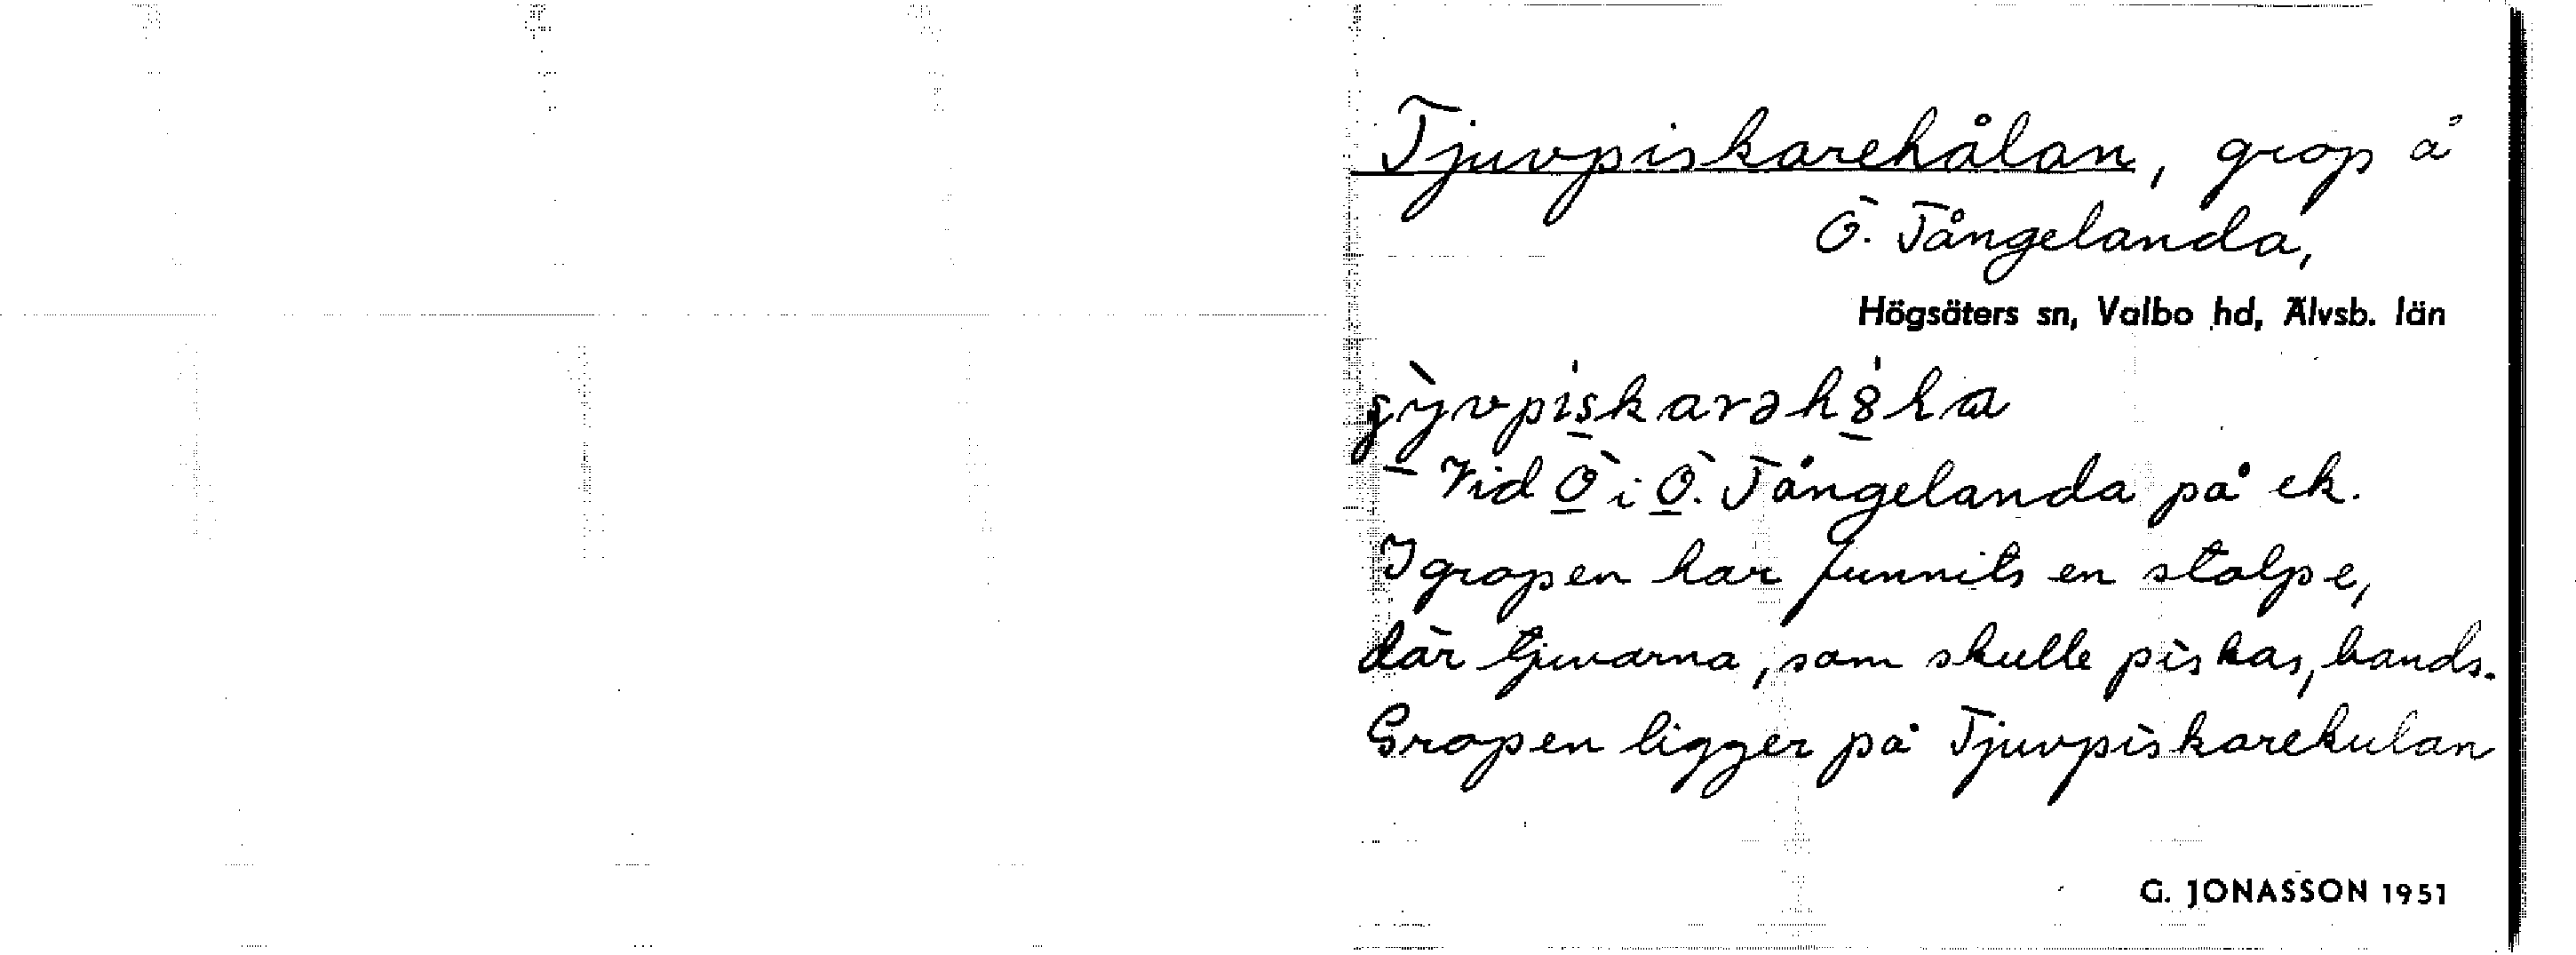 Tjuvpiskarehålan, grop å
Ö. Tångelanda,
Högsäters sn, Valbo hd, Älvsb. län
Vid Ö i Ö. Tångelanda på ek.
I gropen har funnits en stolpe,
där tjuvarna, som skulle piskas, bands.
Gropen ligger på Tjuvpiskarekulan
G. JONASSON 1951